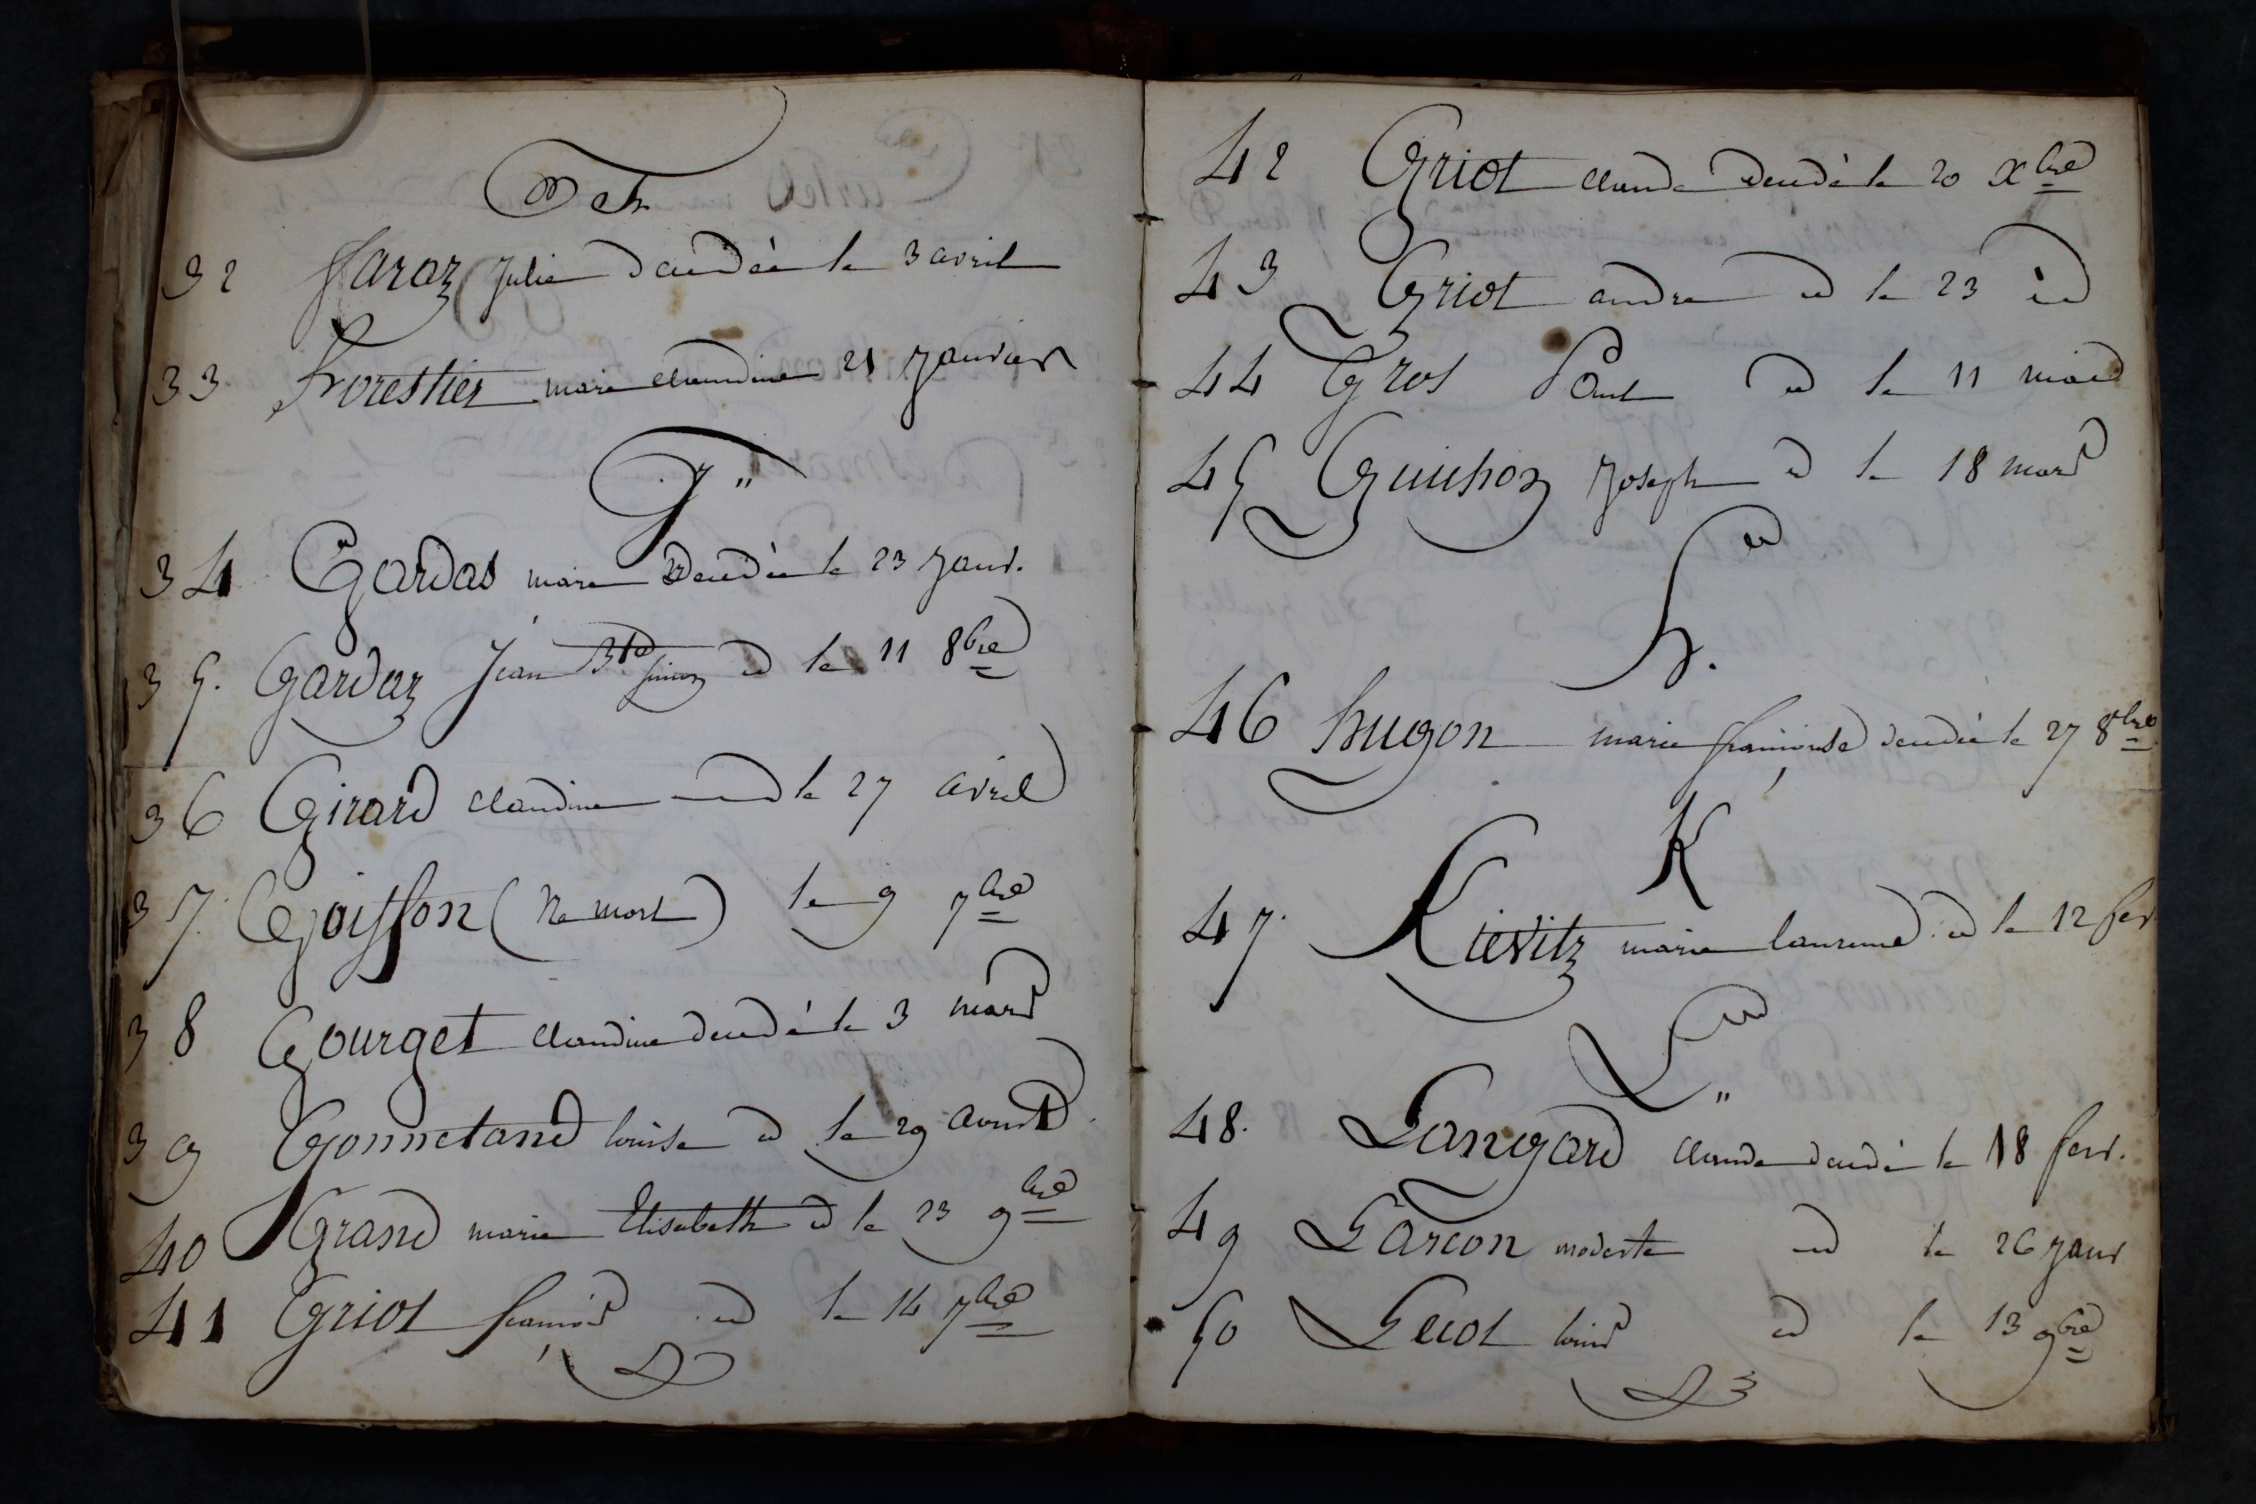 F
32 faraz Julie décédée le 3 avril
33 forestier marie claudine 21 Janvier
G"
34 Gardas marie décédée le 23 Janv.
35. Gardaz Jean Bte simon id le 11 8bre
36 Girard claudine id le 27 avril
37. Goisson (Né mort) le 9 7bre
38 Gourget claudine décédé le 3 mars
39 Gonnetand louise id le 29 aoust
40 Grand marie Elisabeth id le 23 9bre
41 Griot françois id le 14 7bre
42 Griot claude décédé le 20 Xbre
43 Griot andre id le 23 id
44 Gros Paul id le 11
45 Guichon Joseph id le 18 mars
h.
46 hugon marie françoise décédée le 27 8bre
K
47. Kievitz marie id le 12 fev
L"
48. Langard claude décédé le 18 fevr.
49 Larcon modeste id le 26 Janv
50 Lecot louis id le 13 9bre